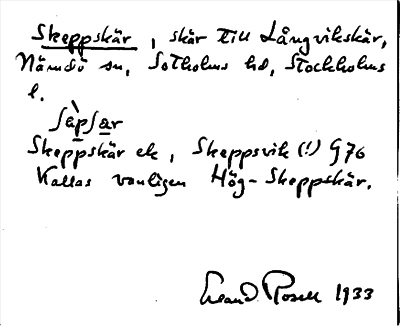 Skeppskär, skär till Långvikskär,
Nämdö sn, Sotholms hd, Stockholms
l.
ʃàpʃar
Skeppskär ek, Skeppsvik (!) G76
Kallas vanligen Hög-Skeppskär.
Erland Rosell 1933